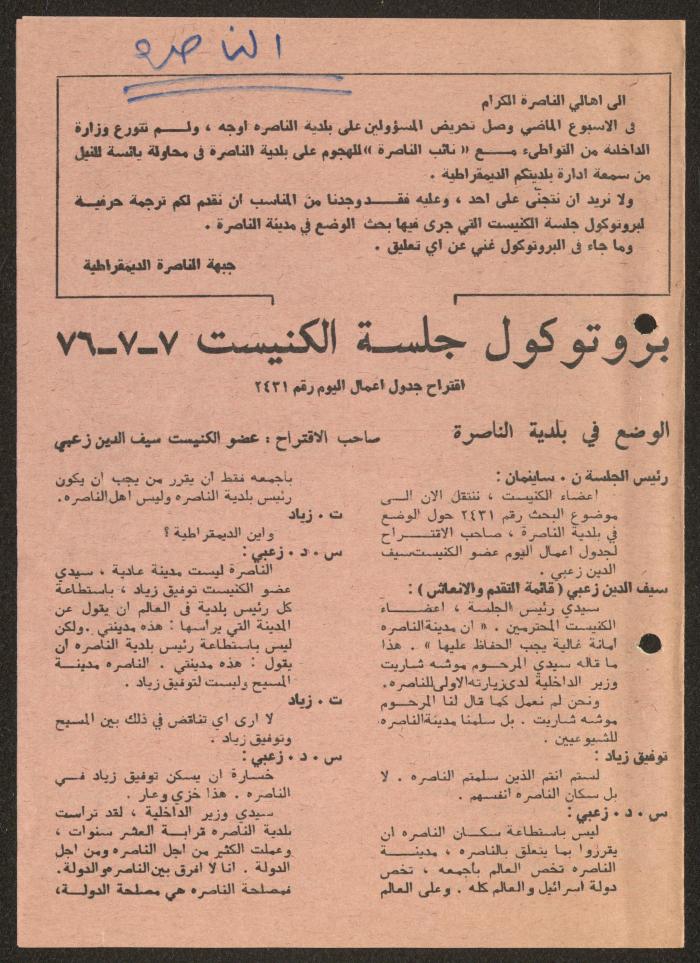 الناصرة
الى اهالي الناصرة الكرام
فى الاسبوع الماضي وصل تحريض المسؤولين على بلدية الناصره اوجه ، ولـــم تتورع وزارة
الداخلية من التواطىء مـــع « نائب الناصرة »للهجوم على بلدية الناصرة فى محاولة يائسة للنيل
من سمعة ادارة بلديتكم الديمقراطية .
ولا نريد ان نتجنّى على احد ، وعليه فقـــد وجدنا من المناسب ان نقدم لكم ترجمة حرفيــة
لبروتوكول جلسة الكنيست التي جرى فيها بحث الوضع في مدينة الناصرة .
وما جاء فى البروتوكول غني عن اي تعليق .
جبهة الناصرة الديمقراطية
بروتوكول جلســة الكنيست ٧ـ٧ـ٧٦
اقتراح جدول اعمال اليوم رقم ٢٤٣١
الوضع في بلدية الناصرة
صاحب الاقتراح : عضو الكنيست سيف الدين زعبي
رئيس الجلسة ن . ساينمان :
اعضاء الكنيست ، ننتقل الان الـــى
موضوع البحث رقم ٢٤٣١ حول الوضع
في بلدية الناصرة ، صاحب الاقتـــراح
لجدول اعمال اليوم عضو الكنيست سيف
الدين زعبي .
سيف الدين زعبي ( قائمة التقدم والانعاش ) :
سيدي رئيس الجلسة ، اعضـــاء
الكنيست المحترمين . « ان مدينة الناصره
امانة غالية يجب الحفاظ عليها » . هذا
ما قاله سيدي المرحـــوم موشه شاريت
وزير الداخلية لدى زيارته الاولى للناصره.
ونحن لم نعمل كما قال لنا المرحـــوم
موشه شاريت . بل سلمنا مدينة الناصره
للشيوعيين .
توفيق زياد :
لستم انتم الذين سلمتم الناصره . لا
بل سكان الناصره انفسهم .
س . د . زعبي :
ليس باستطاعة سكـــان الناصره ان
يقرروا بما يتعلق بالناصره ، مدينـــة
الناصره تخص العالم بأجمعه ، تخص
دولة اسرائيل والعالم كله . وعلى العالم
بأجمعه فقط أن يقرر من يجب ان يكون
رئيس بلدية الناصره وليس اهل الناصره.
ت . زياد
واين الديمقراطية ؟
س . د . زعبي :
الناصرة ليست مدينة عادية ، سيدي
عضو الكنيست توفيق زياد ، باستطاعة
كل رئيس بلدية فى العالم ان يقول عن
المدينة التي يرأسها : هذه مدينتي .ولكن
ليس باستطاعة رئيس بلدية الناصره أن
يقول : هذه مدينتي . الناصره مدينـــة
المسيح وليست لتوفيق زياد .
ت . زياد
لا ارى اي تناقض في ذلك بين المسيح
وتوفيق زياد .
س . د . زعبي :
خسارة ان يسكن توفيق زياد فـــي
الناصره . هذا خزي وعار .
سيدي وزير الداخلية ، لقد ترأست
بلدية الناصره قرابة العشر سنوات ،
وعملت الكثير من اجل الناصره ومن اجل
الدولة . انا لا افرق بين الناصره والدولة.
فمصلحة الناصره هي مصلحة الدولـــة،